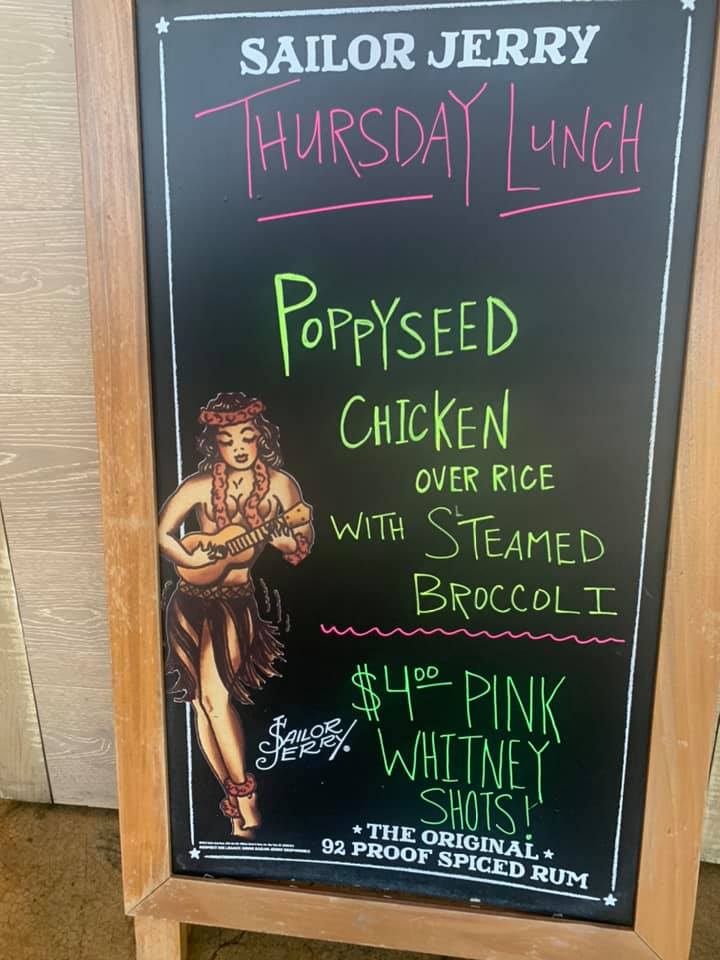 SAILOR JERRY
THURSDAY LUNCH
POPPYSEED
CHICKEN
OVER RICE
WITH STEAMED
BROCCOLI
$4.00 PINK
WHITNEY
SHOTS!
SAILOR
JERRY.
THE ORIGINAL
92 PROOF SPICED RUM